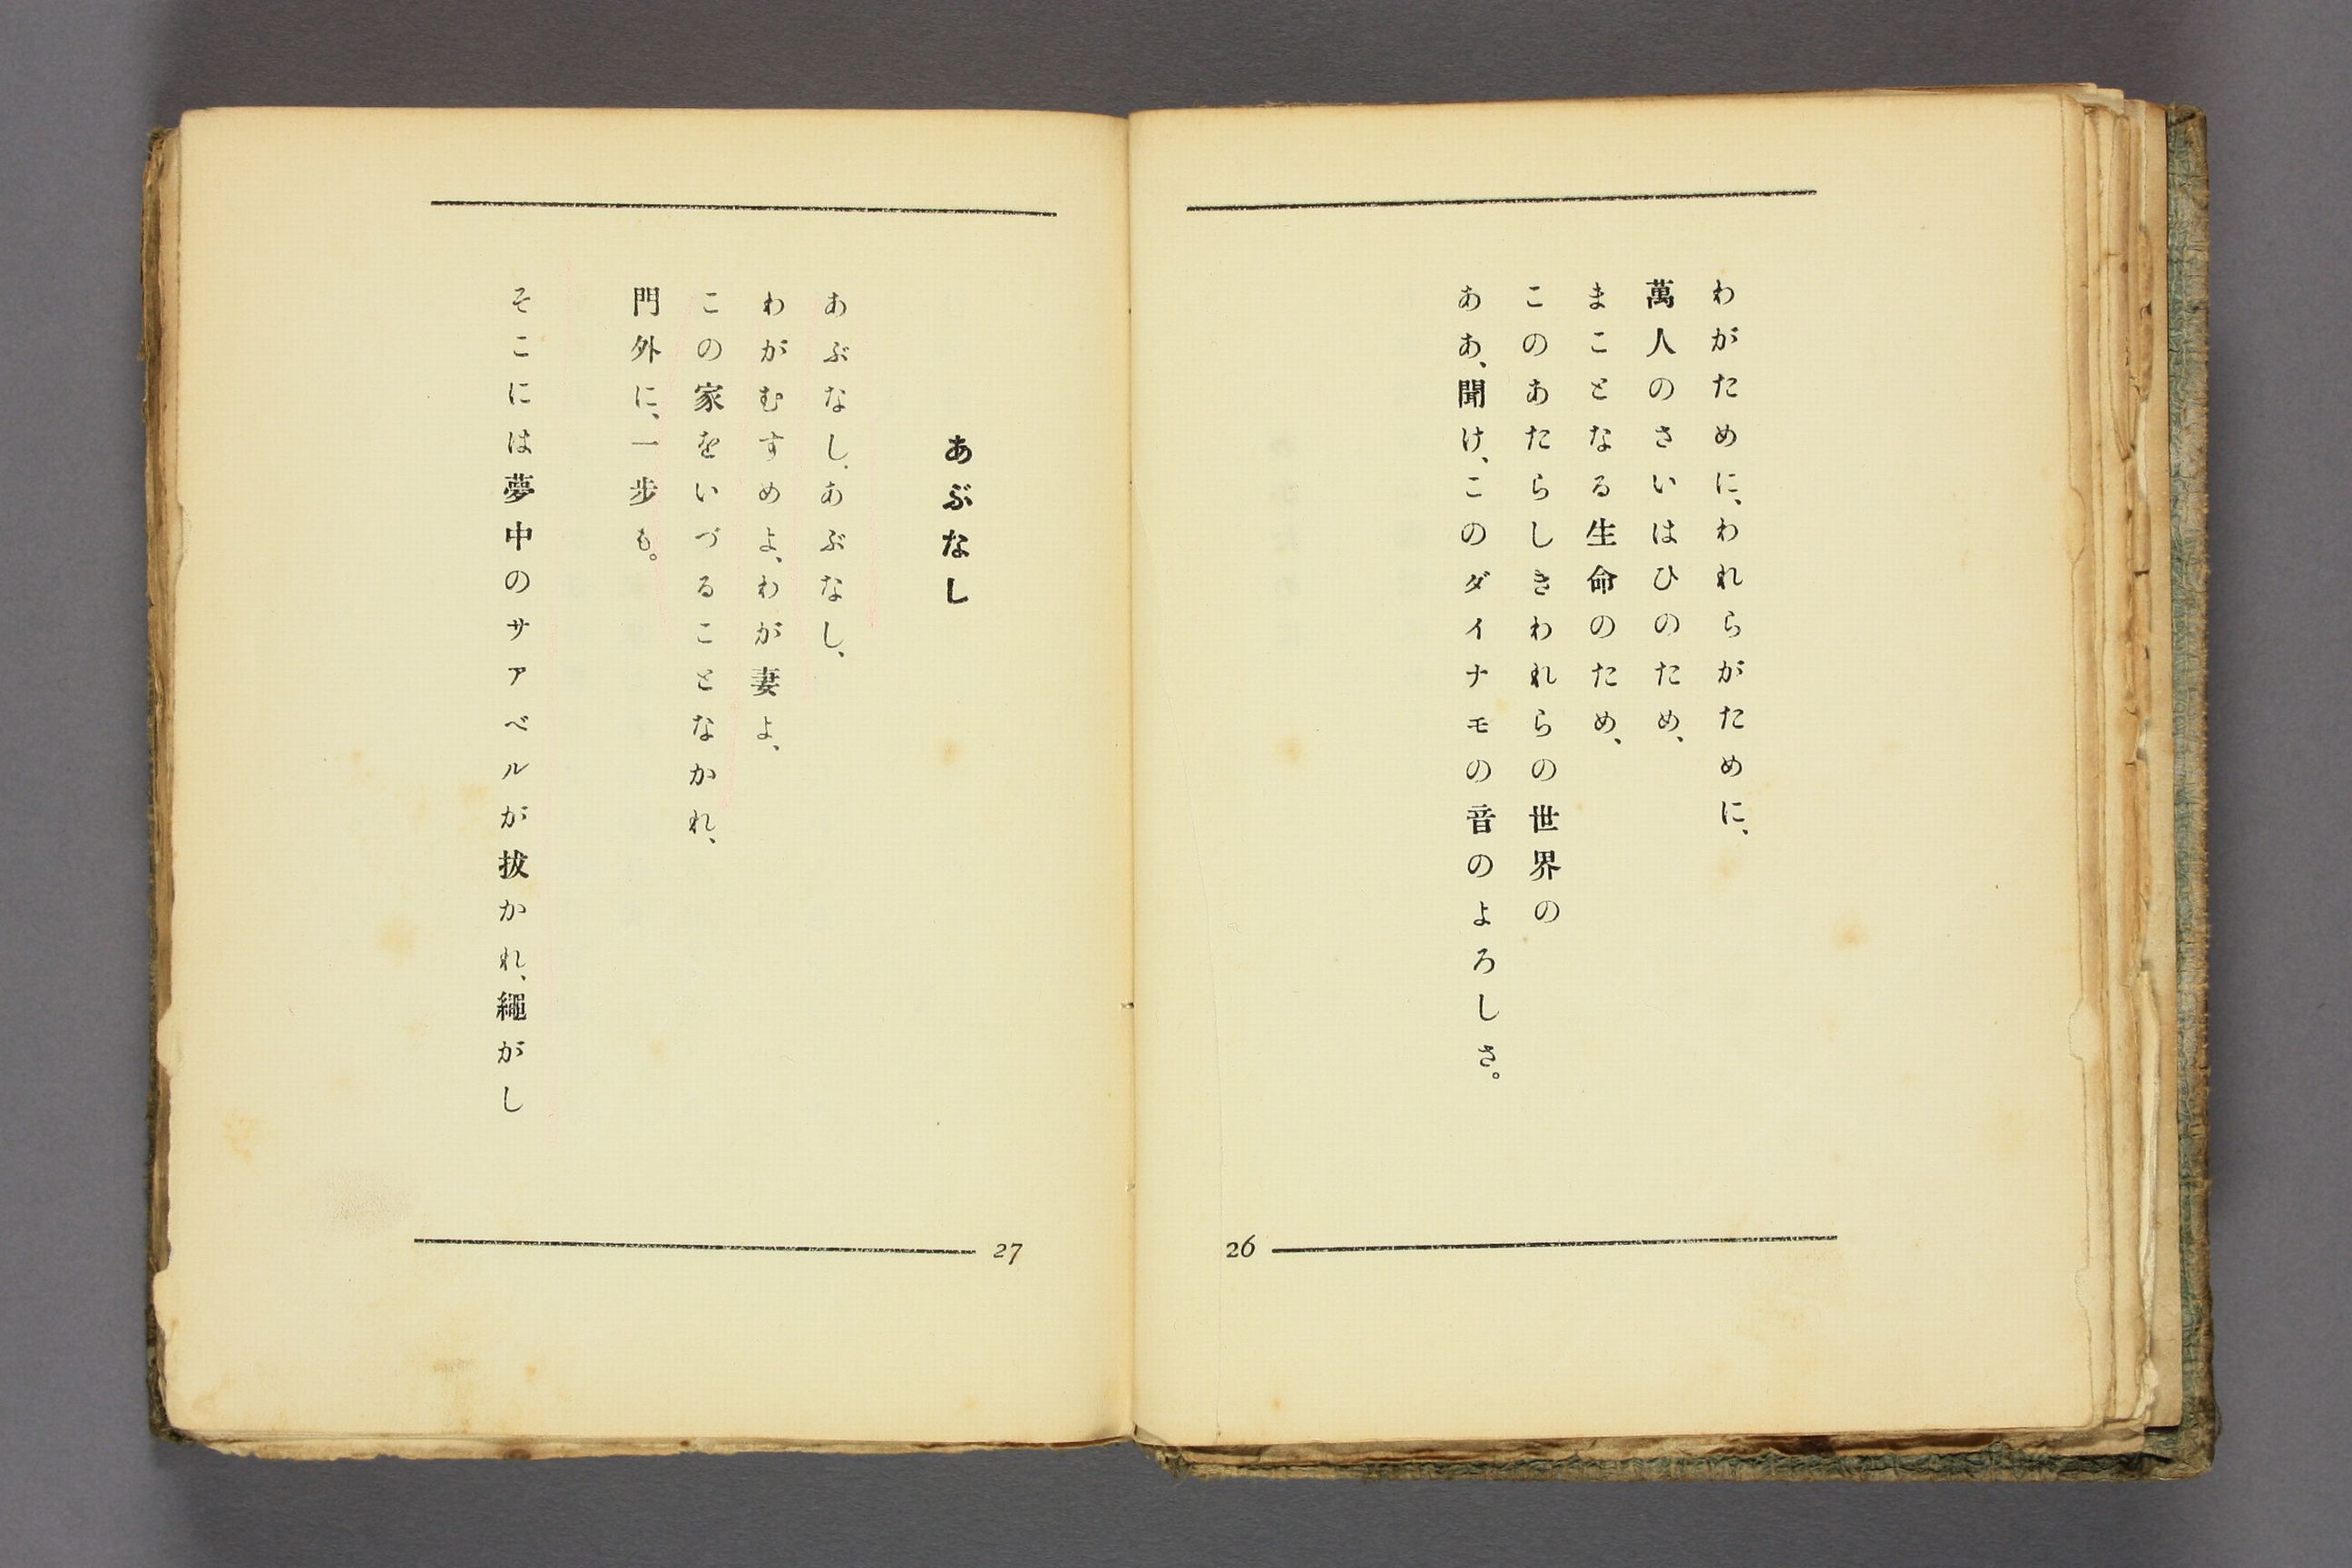 わがために、われらがために、
萬人のさいはひのため、
まことなる生命のため、
このあたらしきわれらの世界の
ああ、聞け、このダイナモの音のよろしさ。
26
あぶなし
あぶなし、あぶなし、
わがむすめよ、わが妻よ、
この家をいづることなかれ、
門外に、一步も。
そこには夢中のサアベルが拔かれ、繩がし
27